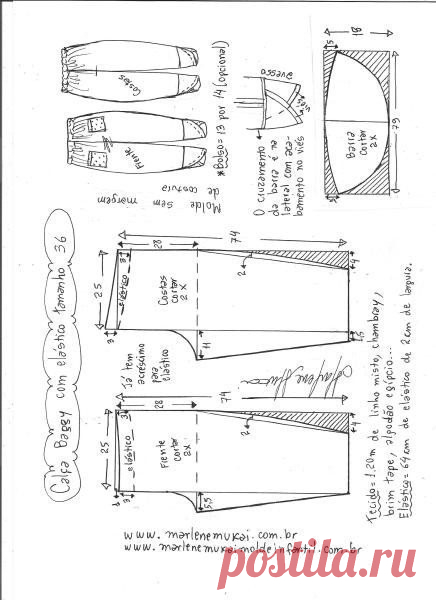 Calça Baggy com elástico tamanho 36
Costas
Frente
*Bolso = 13 por 14 (opcional)
Molde sem margem
de costura
avesso
viés
O cruzamento
da barra é na
lateral com aca-
bamento no viés
18
5
Barra
cortar
2x
79
5
74
28
3
elástico
25
3
Costas
cortar
2x
2
4
11
1,5
Já tem
acréscimo
para
elástico
Marlene Mukai
74
28
3
elástico
25
3
Frente
cortar
2x
2
4
5,5
Tecido = 1.20m de linho misto, chambray,
brim tape, algodão egípcio...
Elástico = 64cm de elástico de 2cm de largura.
www.marlenemukai.com.br
www.marlenemukaimoldeinfantil.com.br
postila.ru